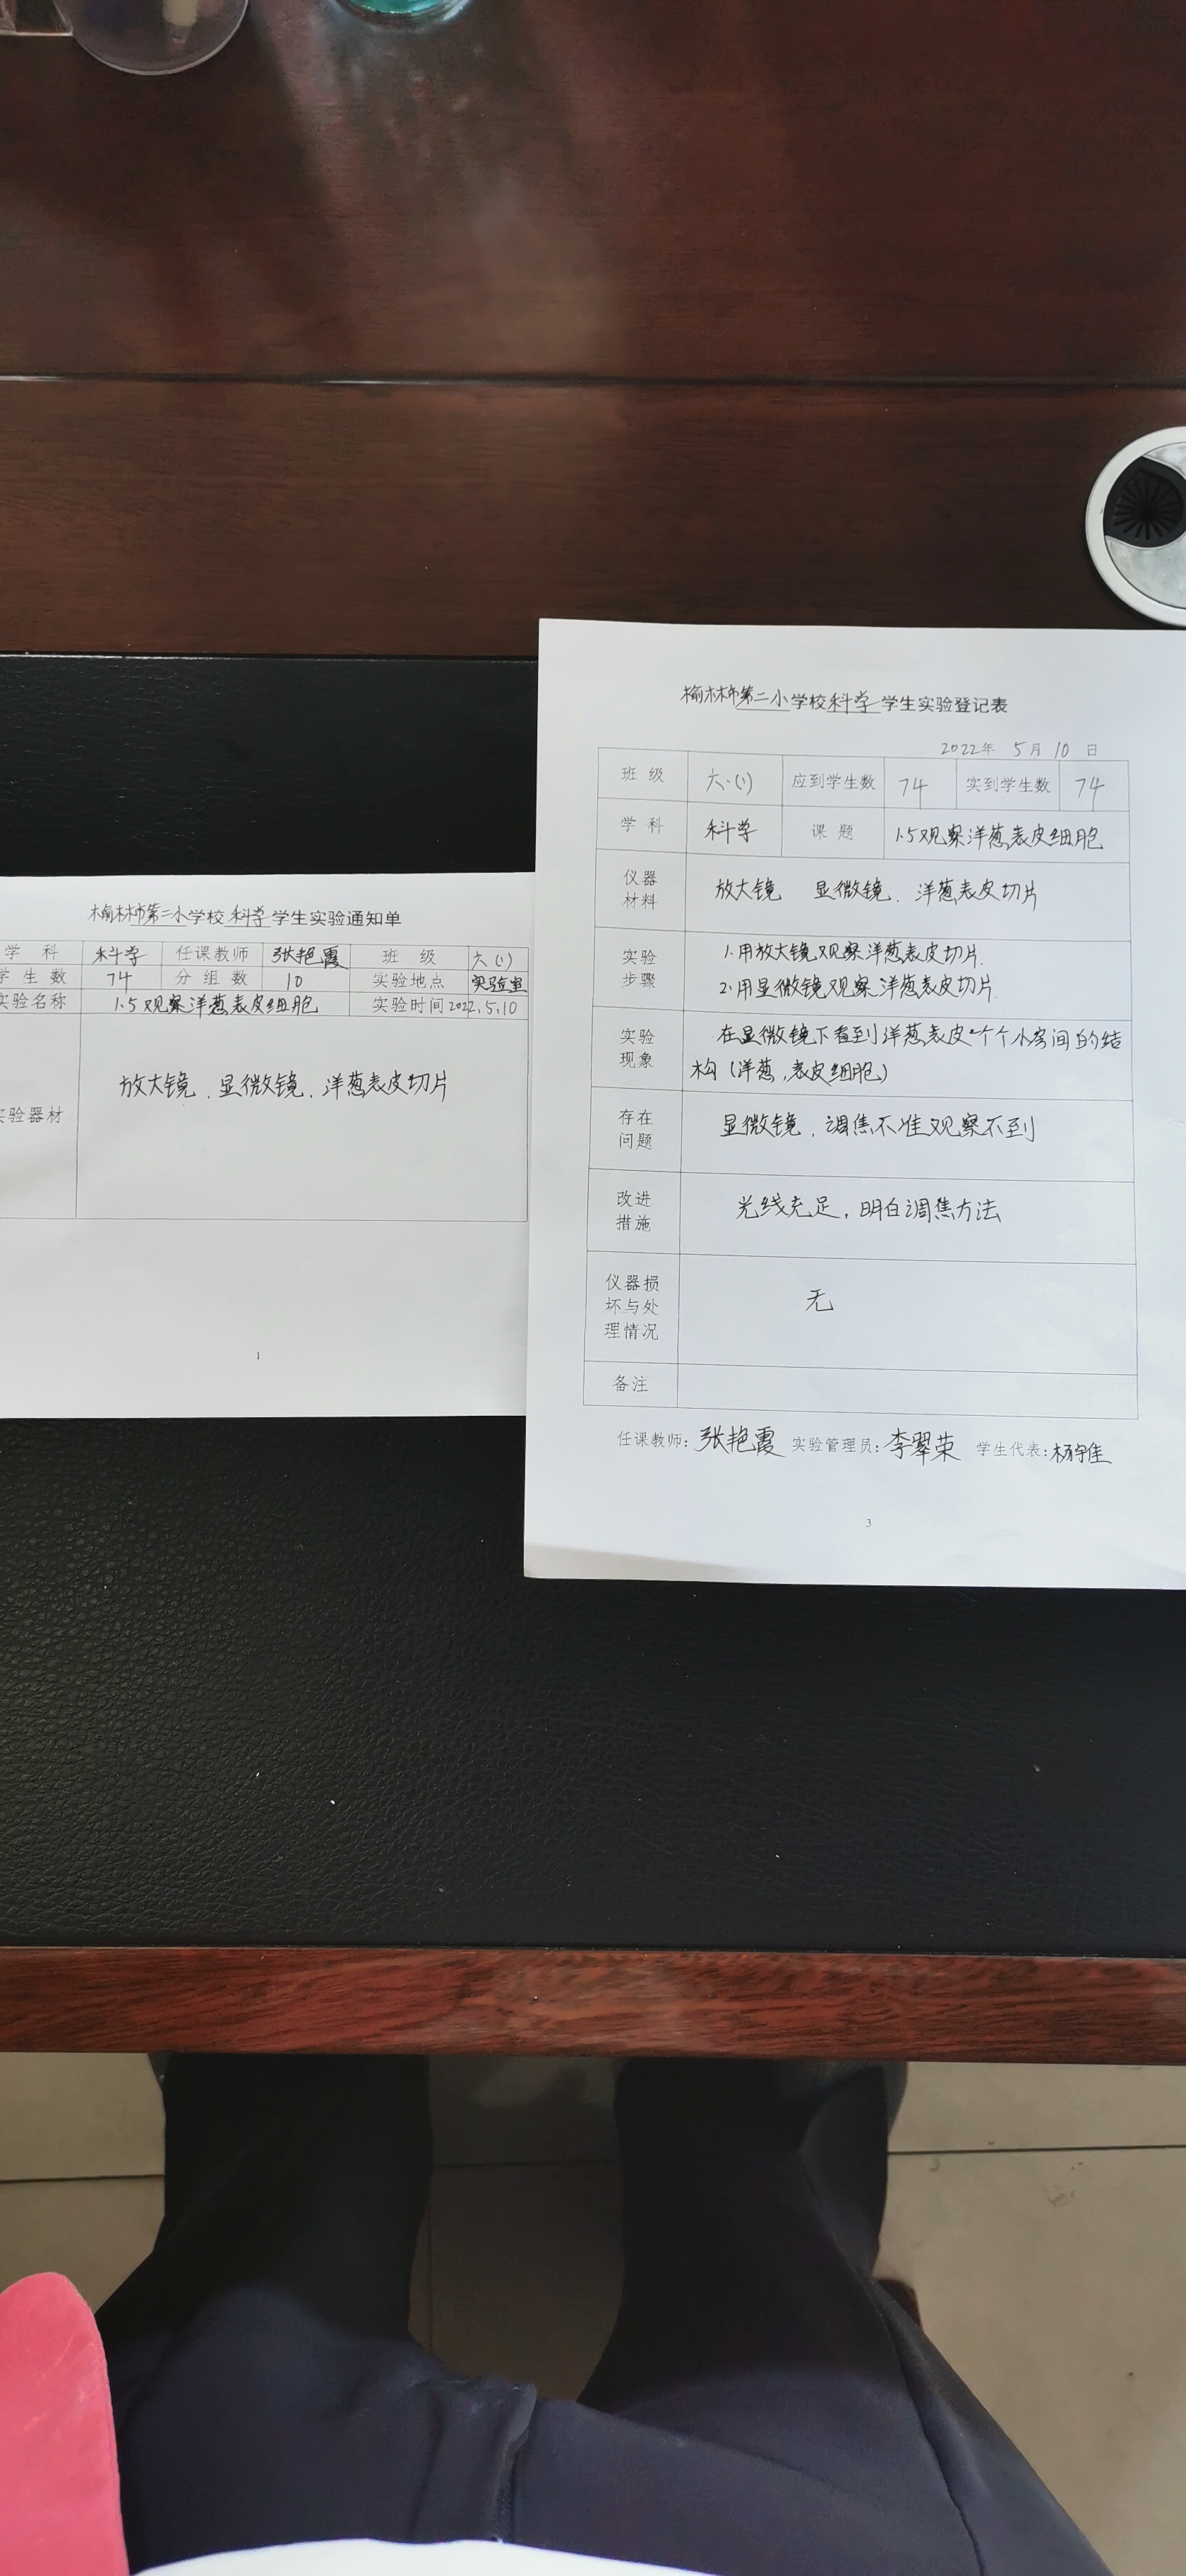 榆林市第二小学校科学学生实验通知单
学 科 科学 任课教师 张艳霞 班 级 六(1)
学生数 74 分组数 10 实验地点 实验室
实验名称 1.5观察洋葱表皮细胞 实验时间 2022.5.10
实验器材 放大镜、显微镜、洋葱表皮切片
1
榆林市第二小学校科学学生实验登记表
2022年 5月 10 日
班 级 六.(1) 应到学生数 74 实到学生数 74
学 科 科学 课 题 1.5观察洋葱表皮细胞
仪器
材料
放大镜 显微镜、洋葱表皮切片
实验
步骤
1.用放大镜观察洋葱表皮切片.
2.用显微镜观察洋葱表皮切片.
实验
现象
在显微镜下看到洋葱表皮个个小房间的结
构(洋葱,表皮细胞)
存在
问题
显微镜、调焦不准观察不到
改进
措施
光线充足,明白调焦方法
仪器损
坏与处
理情况
无
备注
任课教师: 张艳霞 实验管理员: 李翠荣 学生代表: 杨宇佳
3